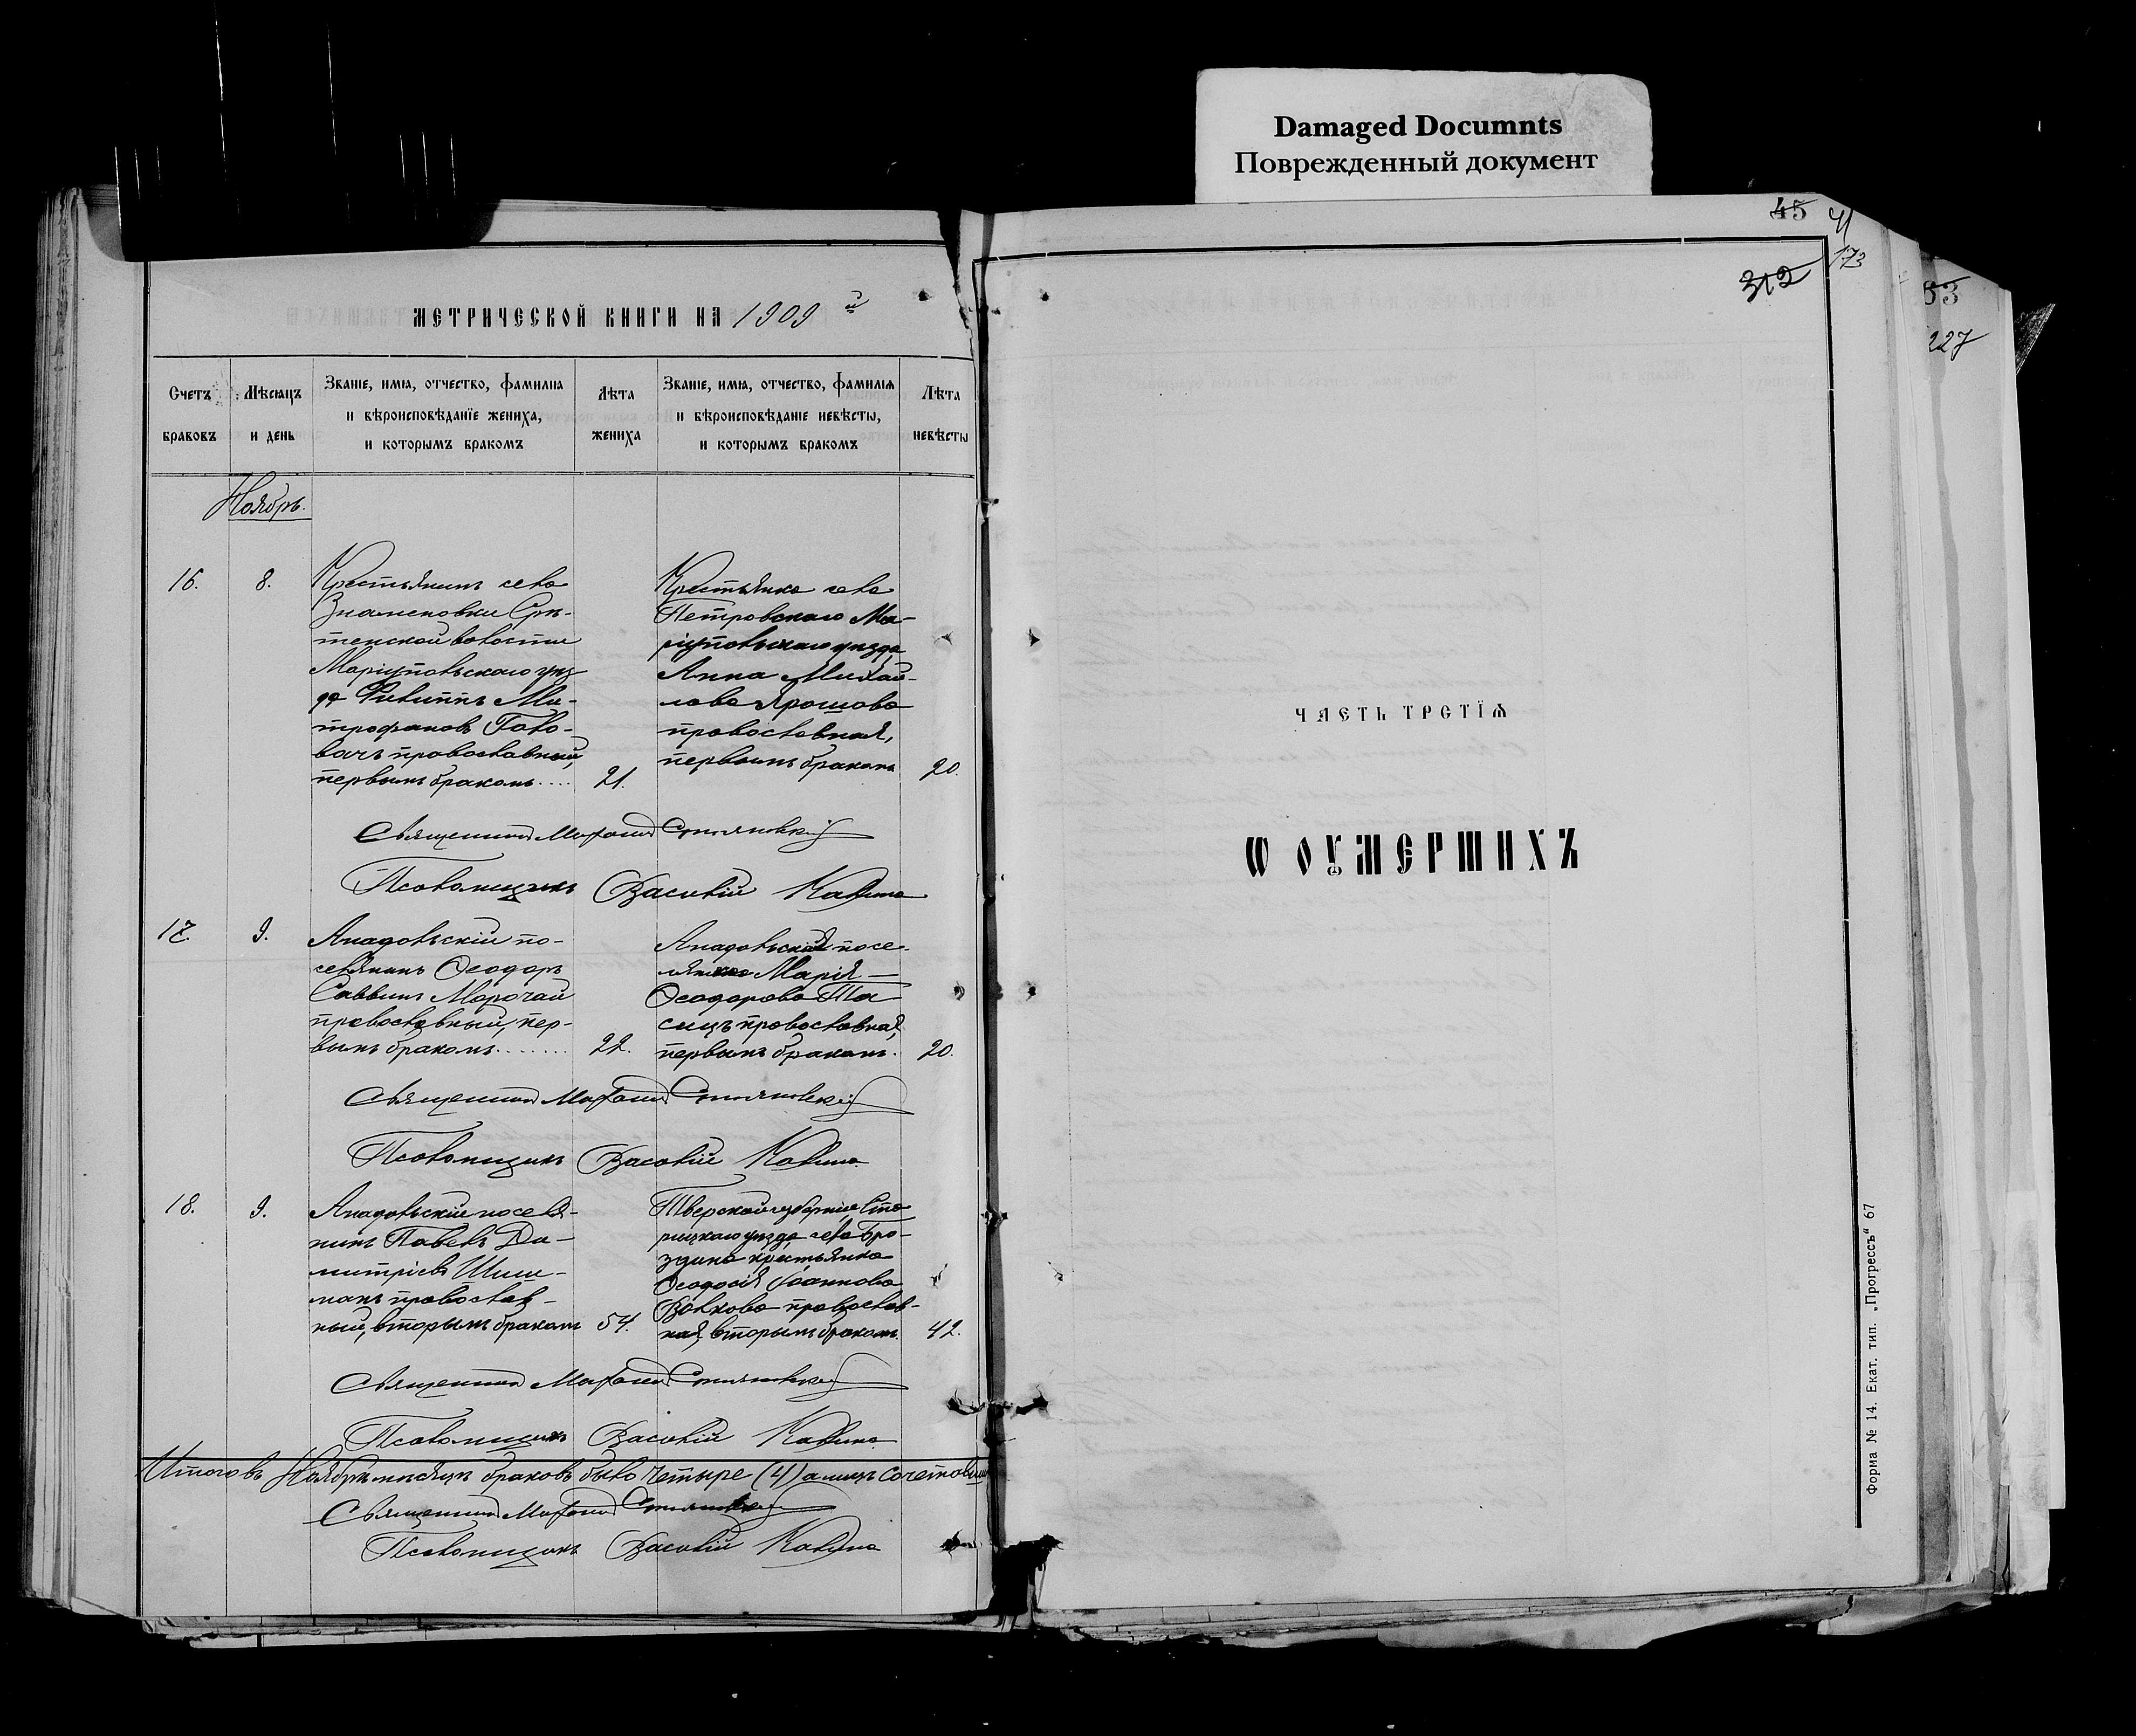 Damaged Documnts
Поврежденный документ
45
41
173
312
53
227
МЕТРИЧЕСКОЙ КНИГИ НА 1909 й
Счетъ браковъ
Мѣсяцъ и день
Званіе, имя, отчество, фамилія и вѣроисповѣданіе жениха, и которымъ бракомъ
Лѣта жениха
Званіе, имя, отчество, фамилія и вѣроисповѣданіе невѣсты, и которымъ бракомъ
Лѣта невѣсты
Ноябрь.
16.
8.
Крестьянинъ села
Знаменовки Срѣ-
тенской волости
Маріупольскаго уѣз
да Филиппъ Ми-
трофановъ Голо-
вачъ православный,
первымъ бракомъ....
21.
Крестьянка села
Петровскаго Ма-
ріупольскаго уѣзда
Анна Михай-
лова Ярошова
православная,
первымъ бракомъ
20.
Священникъ
Псаломщикъ Василій Калина
17.
9.
Анадольскій по-
селянинъ Ѳеодоръ
Саввинъ Марочай
православный, пер-
вымъ бракомъ.......
22.
Анадольская посе-
лянка Марія
Ѳеодорова Та
сицъ православная,
первымъ бракомъ.
20.
Священникъ
Псаломщикъ Василій Калина
18.
9.
Анадольскій поселя-
нинъ Павелъ Ди-
митріевъ Шиш-
манъ православ-
ный, вторымъ бракомъ
54.
Тверской губерніи Ста
рицкаго уѣзда села Бро-
здина крестьянка
Ѳеодосія Іоаннова
Волкова православ-
ная, вторымъ бракомъ.
42.
Священникъ
Псаломщикъ Василій Калина
Итого въ Ноябрѣ мѣсяцѣ браковъ было четыре (4) а лицъ
Священникъ
Псаломщикъ Василій Калина
ЧАСТЬ ТРЕТІЯ
Ѡ ОУМЕРШИХЪ
Форма № 14. Екат. тип. „Прогрессъ“ 67